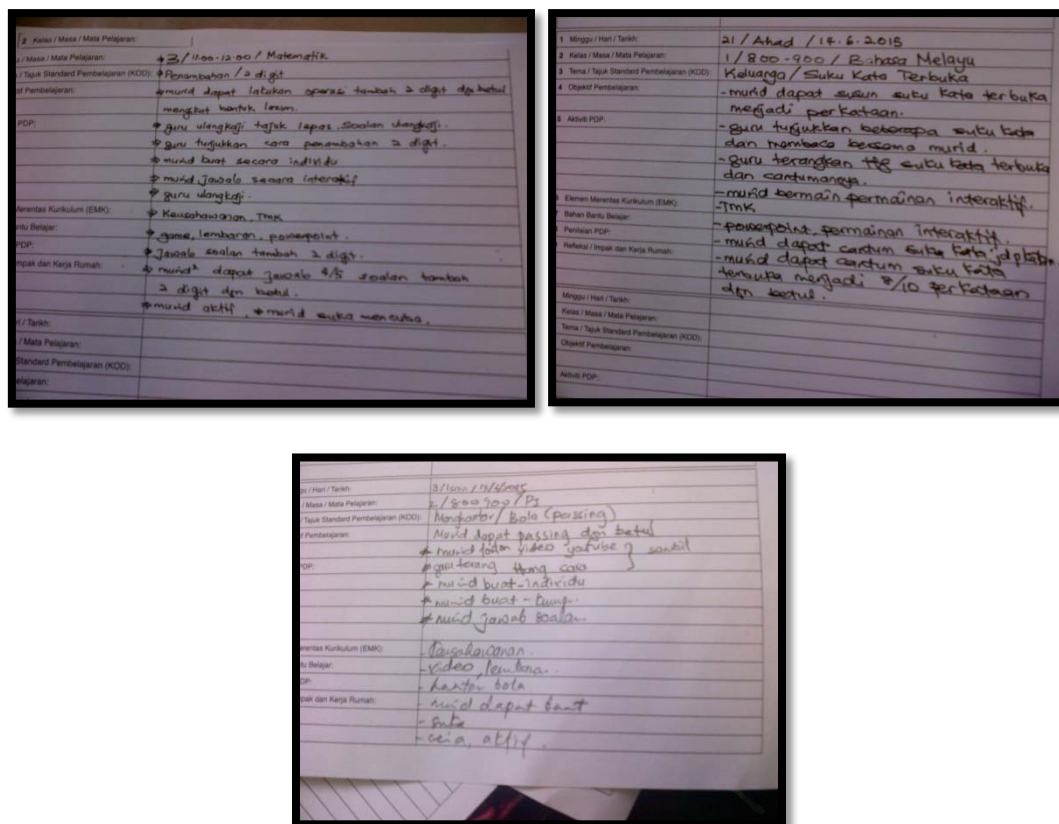 2 Kelas / Masa / Mata Pelajaran:
/ Masa / Mata Pelajaran: 3/11.00-12.00 / Matematik
/ Tajuk Standard Pembelajaran (KOD): Penambahan / 2 digit
Pembelajaran: murid dapat lakukan operasi tambah 2 digit dgn betul
mengikut bentuk lazim.
PDP: guru ulangkaji tajuk lepas, soalan ulangkaji.
guru tunjukkan cara penambahan 2 digit.
murid buat secara individu
murid jawab secara interaktif
guru ulangkaji.
Merentas Kurikulum (EMK): Keusahawanan, TMK
Bantu Belajar: game, lembaran, powerpoint.
PDP: Jawab soalan tambah 2 digit.
Impak dan Kerja Rumah: murid² dapat jawab 4/5 soalan tambah
2 digit dgn betul.
murid aktif, murid suka mencuba.
/ Tarikh:
/ Mata Pelajaran:
Standard Pembelajaran (KOD):
elajaran:
1 Minggu / Hari / Tarikh: 21 / Ahad / 14.6.2015
2 Kelas / Masa / Mata Pelajaran: 1/800-900/ Bahasa Melayu
3 Tema / Tajuk Standard Pembelajaran (KOD): Keluarga/ Suku Kata Terbuka
4 Objektif Pembelajaran: -murid dapat susun suku kata terbuka
menjadi perkataan.
5 Aktiviti PDP: -guru tunjukkan beberapa suku kata
dan membaca bersama murid.
-guru terangkan ttg suku kata terbuka
dan cantumannya.
-murid bermain permainan interaktif.
6 Elemen Merentas Kurikulum (EMK): -TMK
7 Bahan Bantu Belajar: -powerpoint, permainan interaktif.
8 Penilaian PDP: -murid dapat cantum suku kata jd
9 Refleksi / Impak dan Kerja Rumah: -murid dapat cantum suku kata
terbuka menjadi 8/10 perkataan
dgn betul.
Minggu / Hari / Tarikh:
Kelas / Masa / Mata Pelajaran:
Tema / Tajuk Standard Pembelajaran (KOD):
Objektif Pembelajaran:
Aktiviti PDP:
/ Hari / Tarikh:
/ Masa / Mata Pelajaran: 2/800900/PJ
/ Tajuk Standard Pembelajaran (KOD): Menghantar/ Bola (passing)
Pembelajaran: Murid dapat passing dgn betul
murid video youtube } sambil
PDP: guru terang ttg cara
murid buat-individu
murid buat -
murid jawab soalan
Merentas Kurikulum (EMK): -Keusahawanan.
Bantu Belajar: -video,
PDP: - hantar bola
Impak dan Kerja Rumah: - murid dapat buat
- suka
- ceria, aktif.